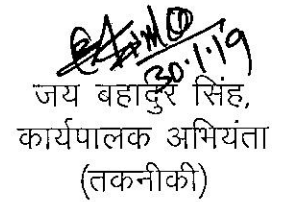 30.1.19
जय बहादुर सिंह,
कार्यपालक अभियंता
(तकनीकी)